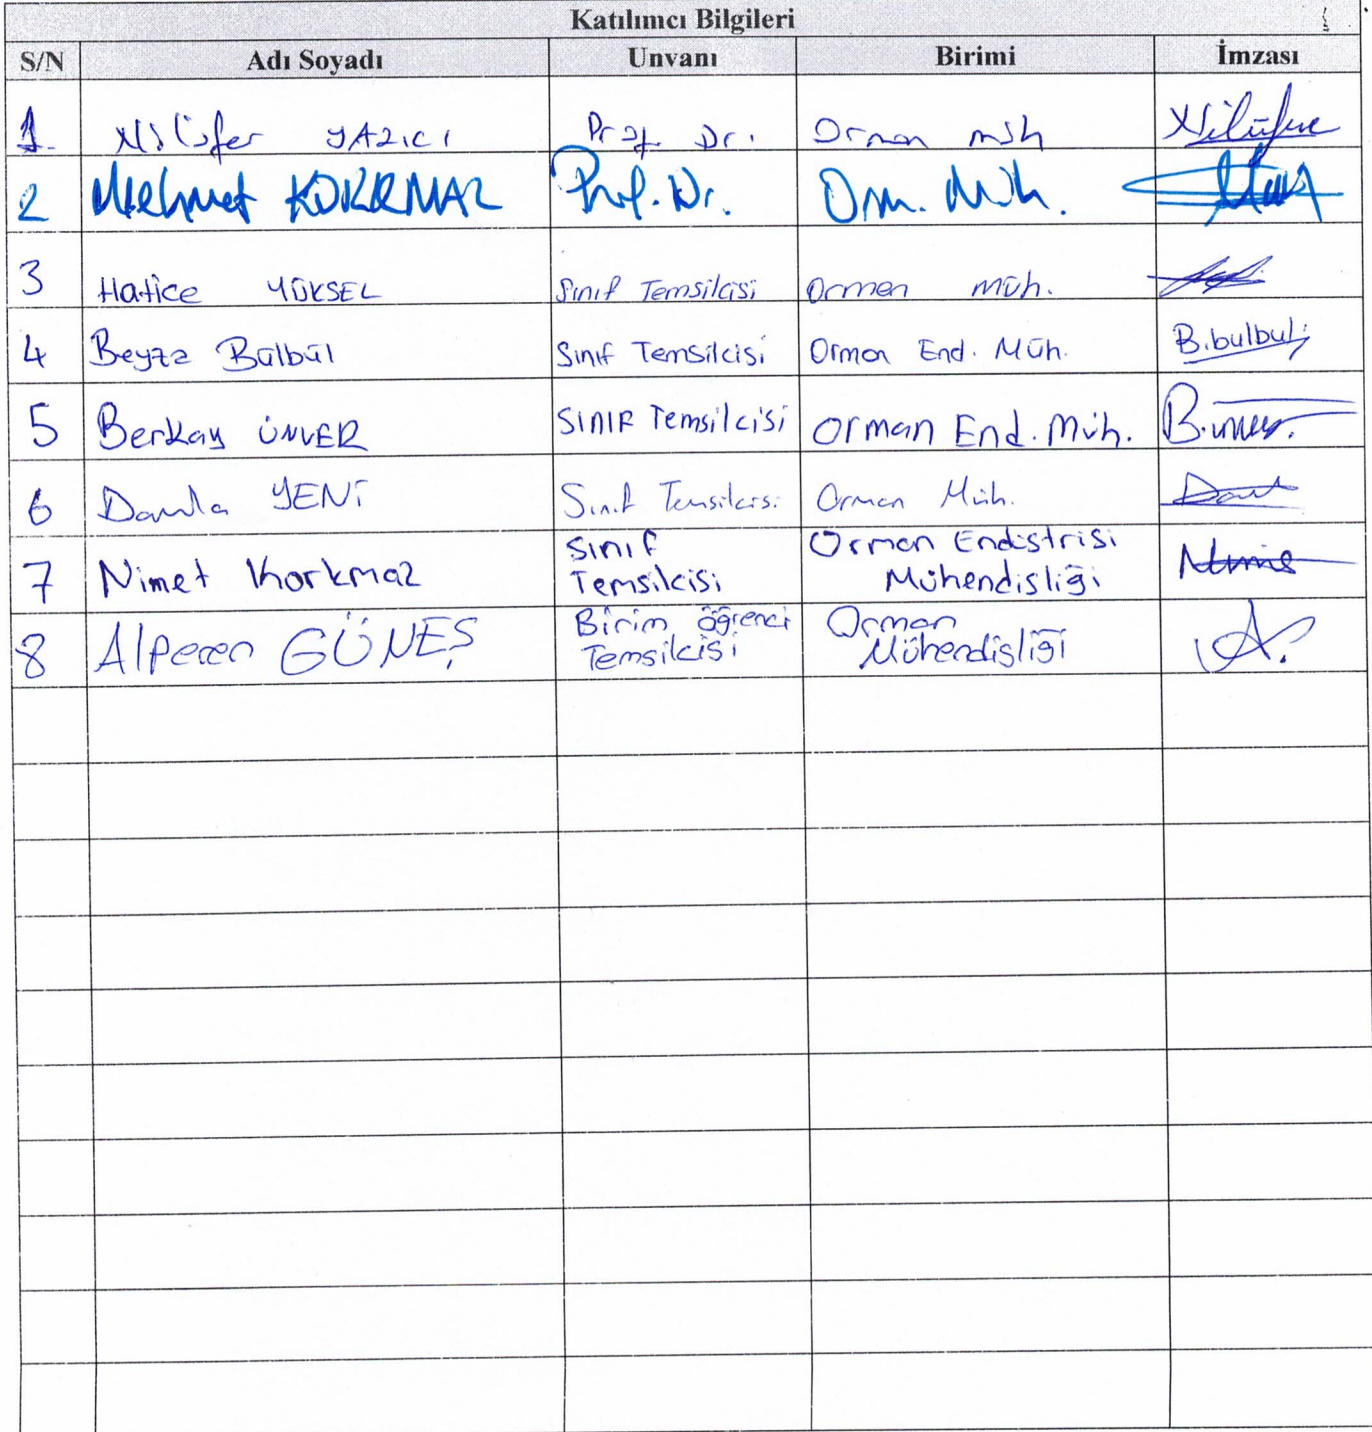 Katılımcı Bilgileri
S/N Adı Soyadı Unvanı Birimi İmzası
1 Nilüfer YAZICI Prof. Dr. Orman müh Nilüfer
2 Mehmet KORKMAZ Prof. Dr. Orm. Müh.
3 Hatice YÜKSEL Sınıf Temsilcisi Orman müh.
4 Beyza Bülbül Sınıf Temsilcisi Orman End. Müh. B.bulbul
5 Berkay ÜNVER SINIF Temsilcisi Orman End. Müh. B.ünver.
6 Damla YENİ Sınıf Temsilcisi Orman Müh.
7 Nimet Korkmaz Sınıf Temsilcisi Orman Endistrisi Mühendisliği
8 Alperen GÜNEŞ Birim öğrenci Temsilcisi Orman Mühendisliği A.